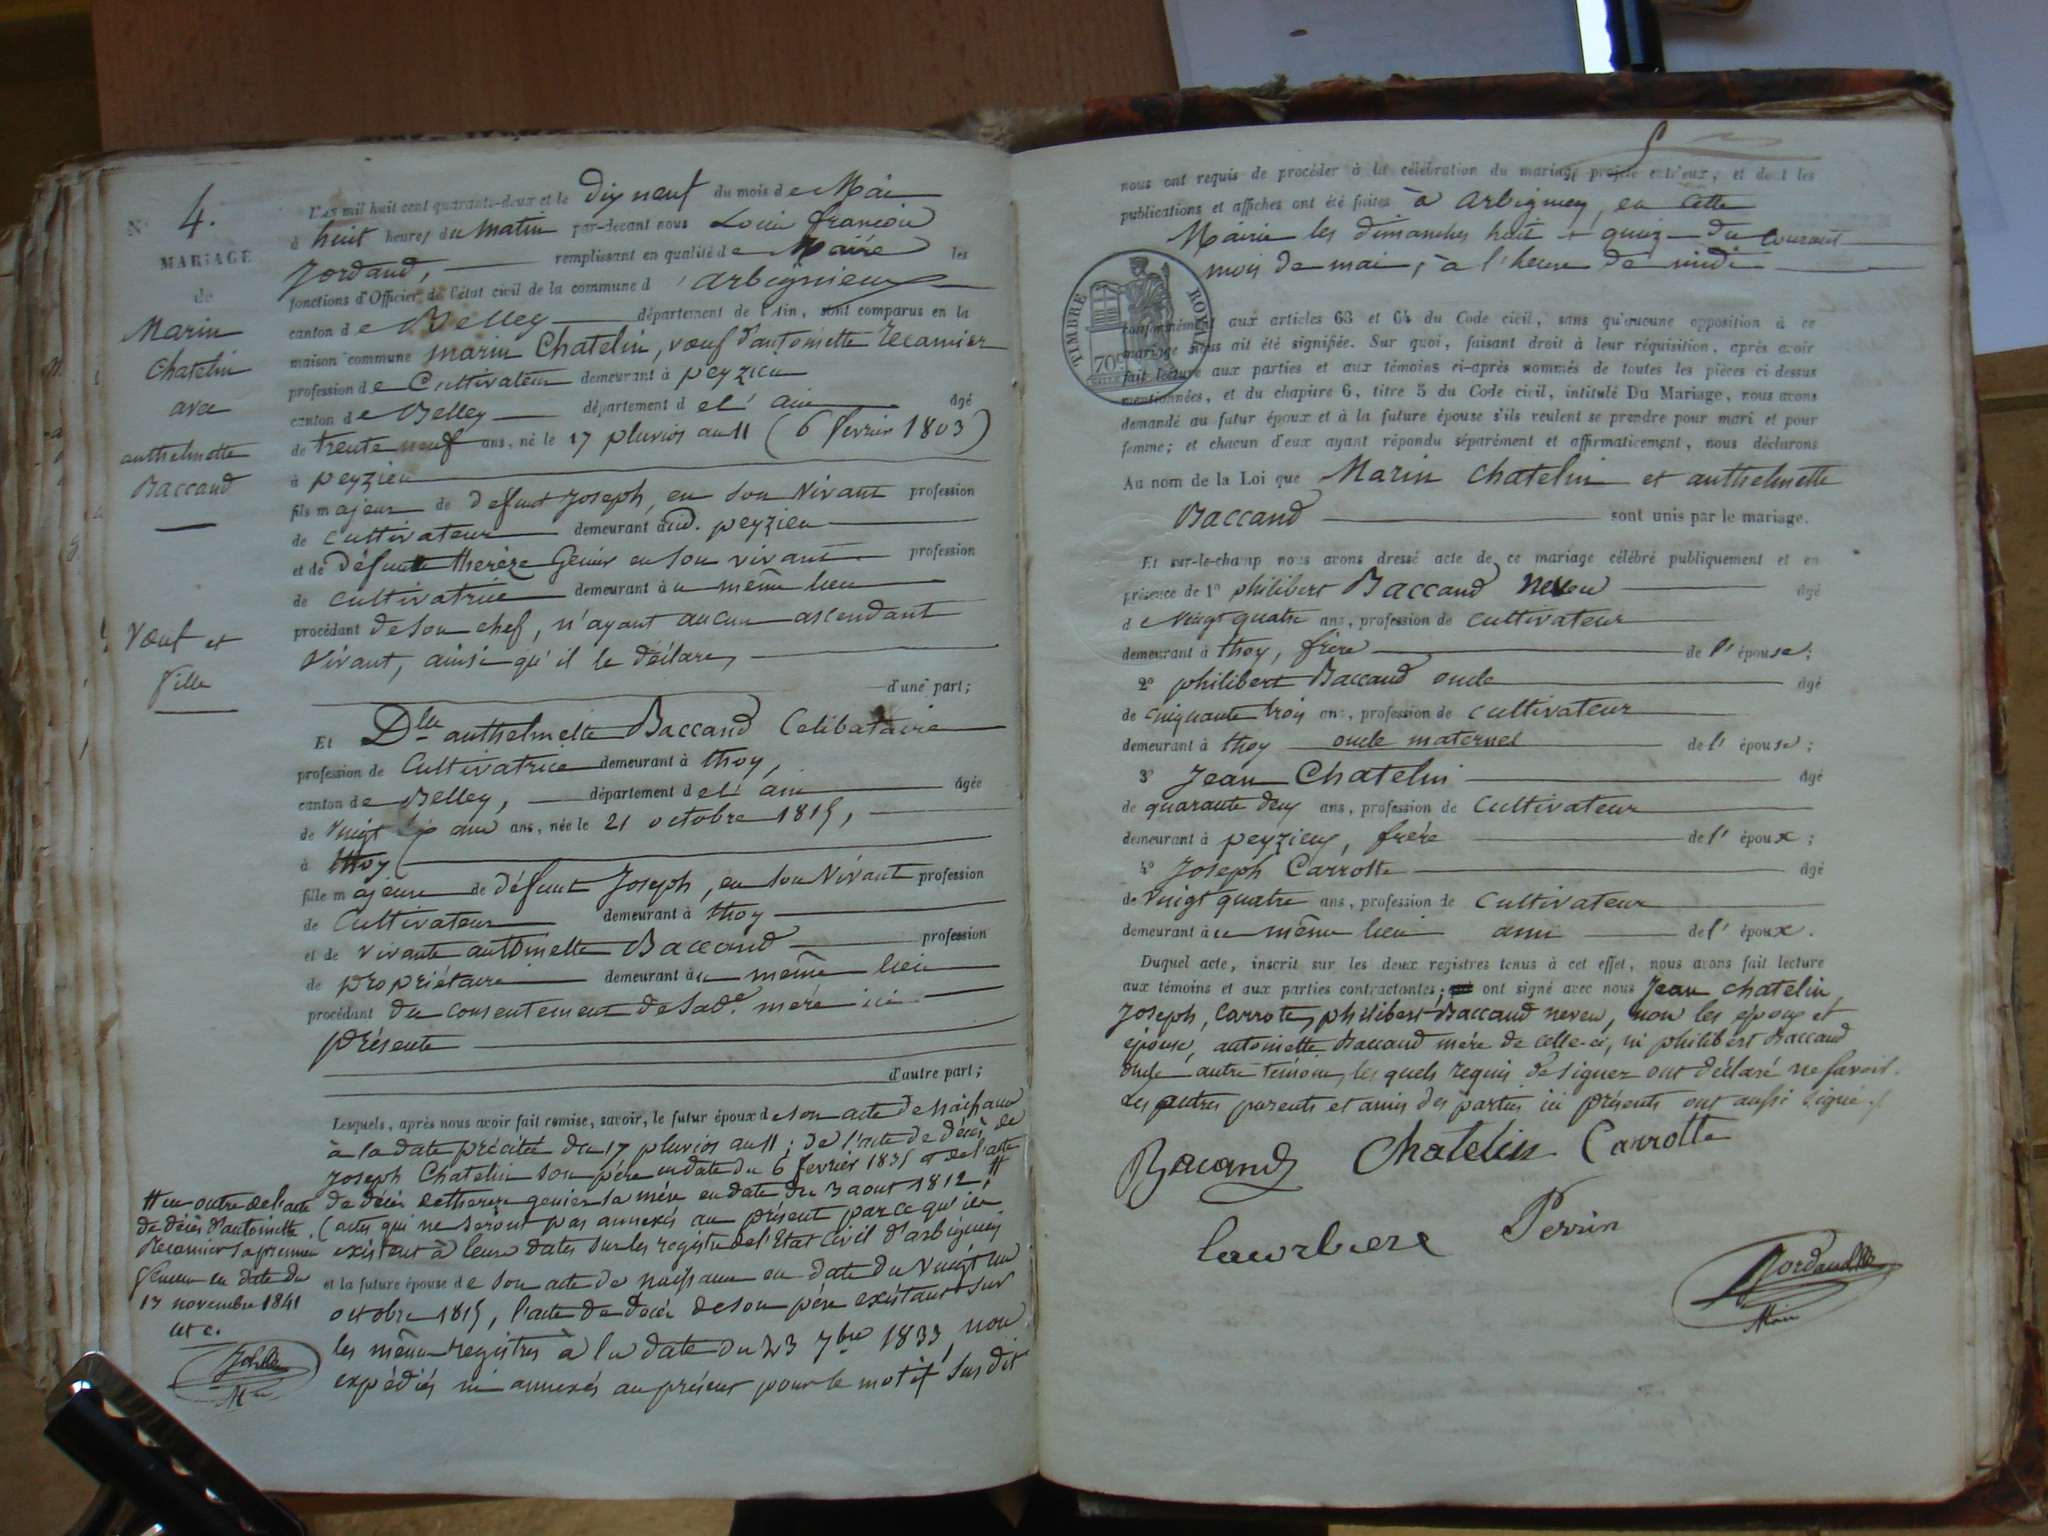 N° 4.
MARIAGE
de
Marin
Chatelin
avec
anthelmette
Baccand
Veuf et
fille
L'an mil huit cent quarante-deux et le dix neuf du mois de Mai
à huit heures du matin par-devant nous Louis françois
Jordand, remplissant en qualité de Maire les
fonctions d'Officier de l'état civil de la commune d'arbignieux
canton de Belley département de l'Ain, sont comparus en la
maison commune marin Chatelin, veuf d'antoinette recamier
profession de Cultivateur demeurant à peyzieu
canton de Belley département de l'ain âgé
de trente neuf ans, né le 17 pluvios an 11 (6 fevrier 1803)
à peyzieu
fils majeur de defunt Joseph, en son vivant profession
de cultivateur demeurant aud. peyzieu
et de défunte therèze Genier en son vivant profession
de cultivatrice demeurant au même lieu
procédant de son chef, n'ayant aucun ascendant
vivant, ainsi qu'il le déclare,
d'une part;
Et Dlle anthelmette Baccand Celibataire
profession de Cultivatrice demeurant à thoy,
canton de Belley, département de l'ain âgée
de vingt six ans ans, née le 21 octobre 1815,
à thoy
fille majeure de défunt Joseph, en son vivant profession
de Cultivateur demeurant à thoy
et de vivante antoinette Baccand profession
de propriétaire demeurant au même lieu
procédant du consentement de sade. mère ici
présente
d'autre part;
Lesquels, après nous avoir fait remise, savoir, le futur époux de son acte de naissance
à la date précitée du 17 pluvios an 11; de l'acte de décès de
Joseph Chatelin son père en date du 6 fevrier 1835 et de l'acte
de décès de therèze genier sa mère en date du 3 aout 1812, #
(actes qui ne seront pas annexés au présent parce qu'ils
existent à leurs dates sur les registres de l'Etat Civil d'arbignieu)
et la future épouse de son acte de naissance en date du vingt un
octobre 1815, l'acte de décès de son père existant sur
les mêmes registres à la date du 23 7bre 1833, non
expédiés ni annexés au présent pour le motif susdit
# en outre de l'acte
de décès d'antoinette
Recamier sa première
femme en date du
13 novembre 1841
nous ont requis de procéder à la célébration du mariage projeté entr'eux, et dont les
publications et affiches ont été faites à arbignieu, en cette
Mairie les dimanches huit et quinze du courant
mois de mai, à l'heure de midi
TIMBRE ROYAL
70c
conformément aux articles 63 et 64 du Code civil, sans qu'aucune opposition à ce
mariage nous ait été signifiée. Sur quoi, faisant droit à leur réquisition, après avoir
fait lecture aux parties et aux témoins ci-après nommés de toutes les pièces ci-dessus
mentionnées, et du chapitre 6, titre 5 du Code civil, intitulé Du Mariage, nous avons
demandé au futur époux et à la future épouse s'ils veulent se prendre pour mari et pour
femme; et chacun d'eux ayant répondu séparément et affirmativement, nous déclarons
Au nom de la Loi que Marin Chatelin et anthelmette
Baccand sont unis par le mariage.
Et sur-le-champ nous avons dressé acte de ce mariage célébré publiquement et en
présence de 1° philibert Baccand neveu âgé
de vingt quatre ans, profession de cultivateur
demeurant à thoy, frère de l'épouse;
2° philibert Baccand oncle âgé
de cinquante trois ans, profession de cultivateur
demeurant à thoy oncle maternel de l'épouse;
3° Jean Chatelin âgé
de quarante deux ans, profession de Cultivateur
demeurant à peyzieu, frère de l'époux;
4° Joseph Carrotte âgé
de vingt quatre ans, profession de Cultivateur
demeurant au même lieu ami de l'époux.
Duquel acte, inscrit sur les deux registres tenus à cet effet, nous avons fait lecture
aux témoins et aux parties contractantes; ont signé avec nous Jean chatelin,
Joseph, Carrotte, philibert Baccand neveu, non les époux et
épouse, antoinette Baccand mère de celle-ci, ni philibert Baccand
oncle autre témoin, les quels requis de signer ont déclaré ne savoir.
Les autres parents et amis des parties ici présents ont aussi signé.
Bacand Chatelin Carrotte
Perrin
Jordand
Maire